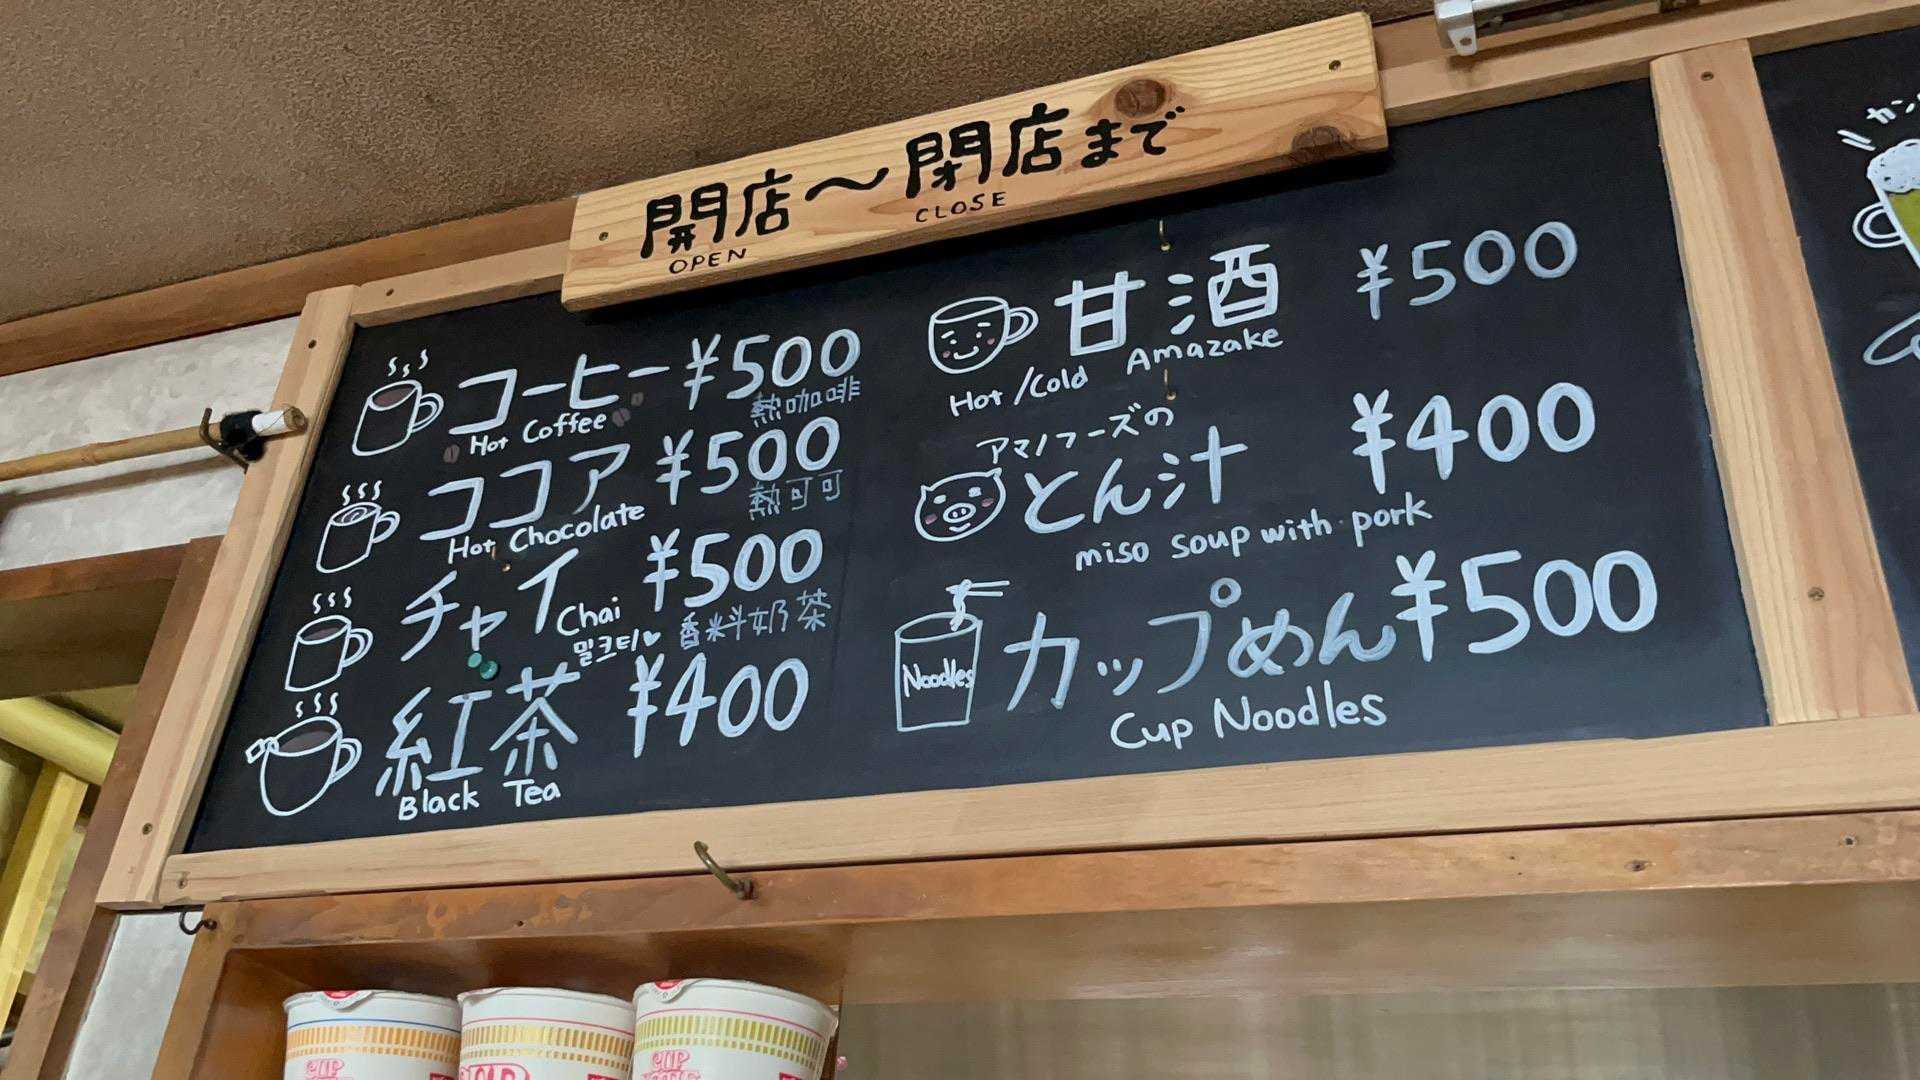 開店〜閉店まで
OPEN CLOSE
コーヒー ¥500
Hot Coffee 熱咖啡
ココア ¥500
Hot Chocolate 熱可可
チャイ ¥500
Chai
밀크티♥ 香料奶茶
紅茶 ¥400
Black Tea
甘酒 ¥500
Hot/Cold Amazake
アマノフーズの
とん汁 ¥400
miso soup with pork
Noodles
カップめん ¥500
Cup Noodles
CUP
CUP
CUP